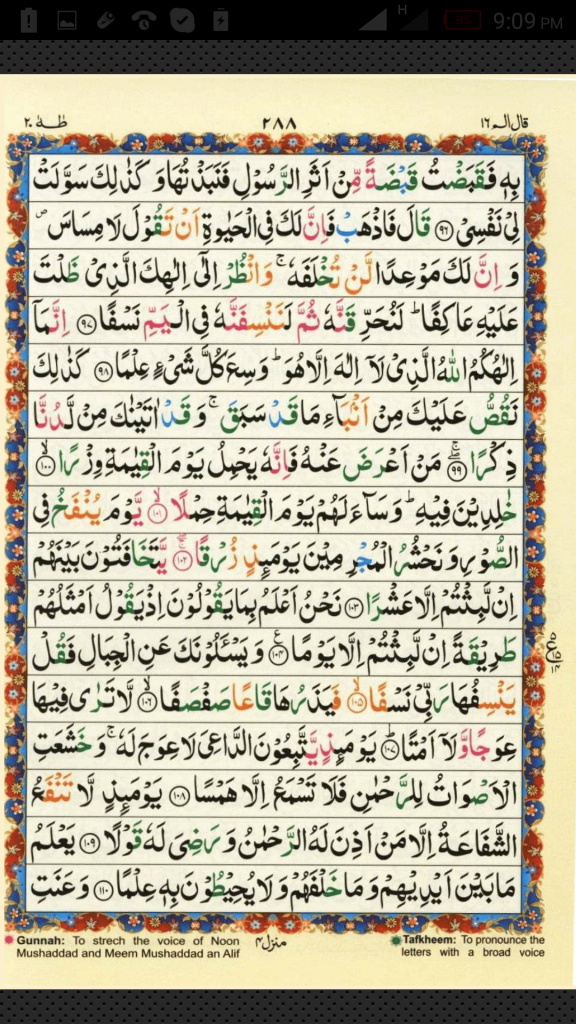 9:09 PM
H
95
طٰهٰ ٢٠
٢٨٨
قال الم ١٦
بِهٖ فَقَبَضْتُ قَبْضَةً مِّنْ اَثَرِ الرَّسُوْلِ فَنَبَذْتُهَا وَ كَذٰلِكَ سَوَّلَتْ
لِیْ نَفْسِیْ ﴿٩٦﴾ قَالَ فَاذْهَبْ فَاِنَّ لَكَ فِی الْحَیٰوةِ اَنْ تَقُوْلَ لَا مِسَاسَ ۪
وَ اِنَّ لَكَ مَوْعِدًا لَّنْ تُخْلَفَهٗ ۚ وَانْظُرْ اِلٰۤى اِلٰهِكَ الَّذِیْ ظَلْتَ
عَلَیْهِ عَاكِفًا ؕ لَنُحَرِّقَنَّهٗ ثُمَّ لَنَنْسِفَنَّهٗ فِی الْیَمِّ نَسْفًا ﴿٩٧﴾ اِنَّمَاۤ
اِلٰهُكُمُ اللّٰهُ الَّذِیْ لَاۤ اِلٰهَ اِلَّا هُوَ ؕ وَسِعَ كُلَّ شَیْءٍ عِلْمًا ﴿٩٨﴾ كَذٰلِكَ
نَقُصُّ عَلَیْكَ مِنْ اَنْۢبَآءِ مَا قَدْ سَبَقَ ۚ وَ قَدْ اٰتَیْنٰكَ مِنْ لَّدُنَّا
ذِكْرًا ﴿٩٩﴾ مَنْ اَعْرَضَ عَنْهُ فَاِنَّهٗ یَحْمِلُ یَوْمَ الْقِیٰمَةِ وِزْرًا ﴿١٠٠﴾
خٰلِدِیْنَ فِیْهِ ؕ وَسَآءَ لَهُمْ یَوْمَ الْقِیٰمَةِ حِمْلًا ﴿١٠١﴾ یَّوْمَ یُنْفَخُ فِی
الصُّوْرِ وَ نَحْشُرُ الْمُجْرِمِیْنَ یَوْمَىِٕذٍ زُرْقًا ﴿١٠٢﴾ یَّتَخَافَتُوْنَ بَیْنَهُمْ
اِنْ لَّبِثْتُمْ اِلَّا عَشْرًا ﴿١٠٣﴾ نَحْنُ اَعْلَمُ بِمَا یَقُوْلُوْنَ اِذْ یَقُوْلُ اَمْثَلُهُمْ
طَرِیْقَةً اِنْ لَّبِثْتُمْ اِلَّا یَوْمًا ﴿١٠٤﴾ وَ یَسْـَٔلُوْنَكَ عَنِ الْجِبَالِ فَقُلْ
یَنْسِفُهَا رَبِّیْ نَسْفًا ﴿١٠٥﴾ فَیَذَرُهَا قَاعًا صَفْصَفًا ﴿١٠٦﴾ لَّا تَرٰى فِیْهَا
عِوَجًا وَّلَاۤ اَمْتًا ﴿١٠٧﴾ یَوْمَىِٕذٍ یَّتَّبِعُوْنَ الدَّاعِیَ لَا عِوَجَ لَهٗ ۚ وَ خَشَعَتِ
الْاَصْوَاتُ لِلرَّحْمٰنِ فَلَا تَسْمَعُ اِلَّا هَمْسًا ﴿١٠٨﴾ یَوْمَىِٕذٍ لَّا تَنْفَعُ
الشَّفَاعَةُ اِلَّا مَنْ اَذِنَ لَهُ الرَّحْمٰنُ وَ رَضِیَ لَهٗ قَوْلًا ﴿١٠٩﴾ یَعْلَمُ
مَا بَیْنَ اَیْدِیْهِمْ وَ مَا خَلْفَهُمْ وَ لَا یُحِیْطُوْنَ بِهٖ عِلْمًا ﴿١١٠﴾ وَ عَنَتِ
Gunnah: To strech the voice of Noon
Mushaddad and Meem Mushaddad an Alif
منزل ٤
Tafkheem: To pronounce the
letters with a broad voice